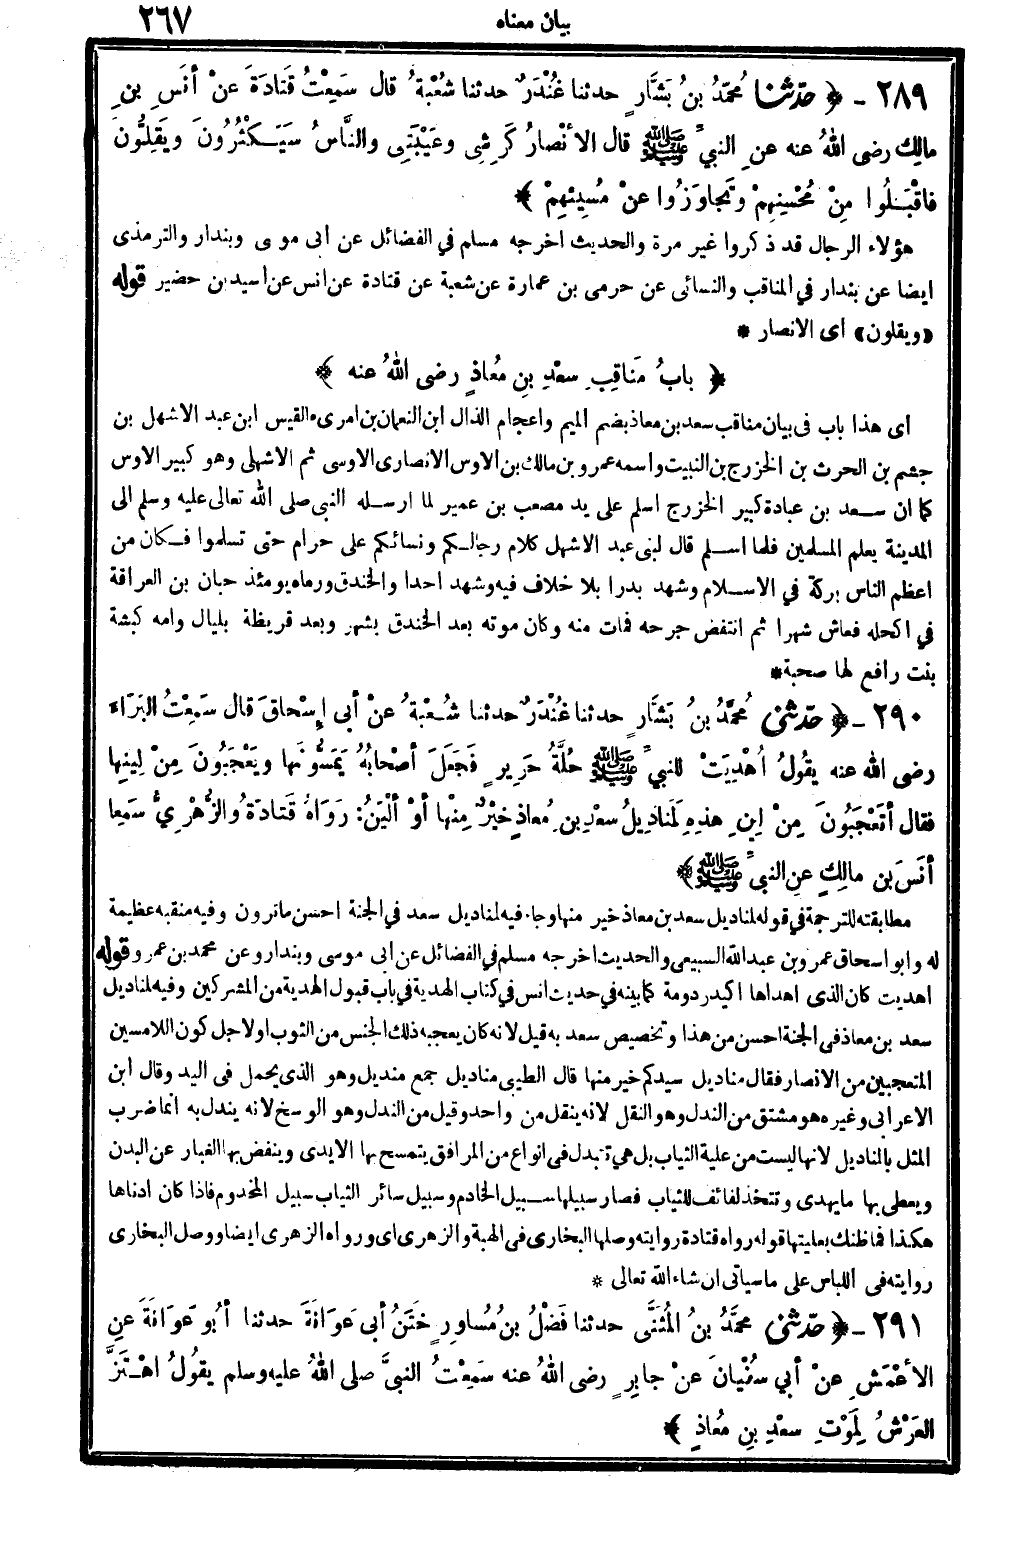 بيان معناه ٢٦٧
٢٨٩ - ﴿ حدّثنا مُحَمَّدُ بنُ بَشَّارٍ حدثنا غُنْدَرٌ حدثنا شُعْبَةُ قال سَمِعْتُ قَتَادَةَ عنْ أنَسِ بنِ
مالِكٍ رضى اللهُ عنه عنِ النبيِّ ﷺ قال الأنْصارُ كَرِشِى وعَيْبَتِى والنَّاسُ سَيَكْثُرُونَ ويَقِلُّونَ
فاقْبَلُوا مِنْ مُحْسِنِهِمْ وتَجاوَزُوا عنْ مُسِيئِهِمْ ﴾
هؤلاء الرجال قد ذكروا غير مرة والحديث اخرجه مسلم في الفضائل عن ابى موسى وبندار والترمذى
ايضا عن بندار في المناقب والنسائى عن حرمى بن عمارة عن شعبة عن قتادة عن انس عن اسيد بن حضير قوله
«ويقلون» اى الانصار *
﴿ بابُ مَناقِبِ سعْدِ بنِ مُعاذٍ رضى اللهُ عنه ﴾
اى هذا باب فى بيان مناقب سعد بن معاذ بضم الميم واعجام الذال ابن النعمان بن امرىء القيس ابن عبد الاشهل بن
جشم بن الحرث بن الخزرج بن النبيت واسمه عمرو بن مالك بن الاوس الانصارى الاوسى ثم الاشهلى وهو كبير الاوس
كما ان سعد بن عبادة كبير الخزرج اسلم على يد مصعب بن عمير لما ارسله النبى صلى الله تعالى عليه وسلم الى
المدينة يعلم المسلمين فلما اسلم قال لبنى عبد الاشهل كلام رجالكم ونسائكم على حرام حتى تسلموا فكان من
اعظم الناس بركة في الاسلام وشهد بدرا بلا خلاف فيه وشهد احدا والخندق ورماه يومئذ حبان بن العراقة
في اكحله فعاش شهرا ثم انتفض جرحه فمات منه وكان موته بعد الخندق بشهر وبعد قريظة بليال وامه كبشة
بنت رافع لها صحبة *
٢٩٠ - ﴿ حدّثنى مُحَمَّدُ بنُ بَشَّارٍ حدثنا غُنْدَرٌ حدثنا شُعْبَةُ عنْ أبى إسْحاقَ قال سَمِعْتُ البَرَاءَ
رضى الله عنه يقولُ اُهْدِيَتْ للنبيِّ ﷺ حُلَّةُ حَرِيرٍ فَجَعَلَ أصْحابُهُ يَمَسُّونَها ويَعْجَبُونَ مِنْ لِينِها
فقال أتَعْجَبُونَ مِنْ لِينِ هذِهِ لَمَنادِيلُ سعْدِ بنِ مُعاذٍ خيْرٌ مِنْها أوْ ألْيَنُ: رَوَاهُ قَتادَةُ والزُّهْرِيُّ سَمِعا
أنَسَ بن مالِكٍ عنِ النبيِّ ﷺ ﴾
مطابقته للترجمة في قوله لمناديل سعد بن معاذ خير منها وجاء فيه لمناديل سعد في الجنة احسن ما ترون وفيه منقبه عظيمة
له وابو اسحاق عمرو بن عبدالله السبيعى والحديث اخرجه مسلم في الفضائل عن ابى موسى وبندار وعن محمد بن عمرو قوله
اهديت كان الذى اهداها اكيدر دومة كما بينه في حديث انس في كتاب الهدية في باب قبول الهدية من المشركين وفيه لمناديل
سعد بن معاذ فى الجنة احسن من هذا وتخصيص سعد به قيل لانه كان يعجبه ذلك الجنس من الثوب اولاجل كون اللامسين
المتعجبين من الانصار فقال مناديل سيدكم خير منها قال الطيبى مناديل جمع منديل وهو الذى يحمل فى اليد وقال ابن
الاعرابى وغيره هو مشتق من الندل وهو النقل لانه ينقل من واحد وقيل من الندل وهو الوسخ لانه يندل به انما ضرب
المثل بالمناديل لانها ليست من علية الثياب بل هي تبدل فى انواع من المرافق يتمسح بها الايدى وينفض بها الغبار عن البدن
ويعطى بها ما يهدى وتتخذ لفائف للثياب فصار سبيلها سبيل الخادم وسبيل سائر الثياب سبيل المخدوم فاذا كان ادناها
هكذا فما ظنك بعليتها قوله رواه قتادة روايته وصلها البخارى فى الهبة والزهرى اى ورواه الزهرى ايضا ووصل البخارى
روايته فى اللباس على ما سياتى ان شاء الله تعالى *
٢٩١ - ﴿ حدّثنى محَمَّدُ بنُ المُثَنَّى حدثنا فَضْلُ بنُ مُساوِرٍ خَتَنُ أبى عَوَانَةَ حدثنا أبُو عَوَانَةَ عنِ
الأعْمَشِ عنْ أبي سُفْيانَ عنْ جابِرٍ رضى اللهُ عنه سَمِعْتُ النبيَّ صلى اللهُ عليه وسلم يقُولُ اهْتَزَّ
العَرْشُ لِمَوْتِ سعْدِ بنِ مُعاذٍ ﴾